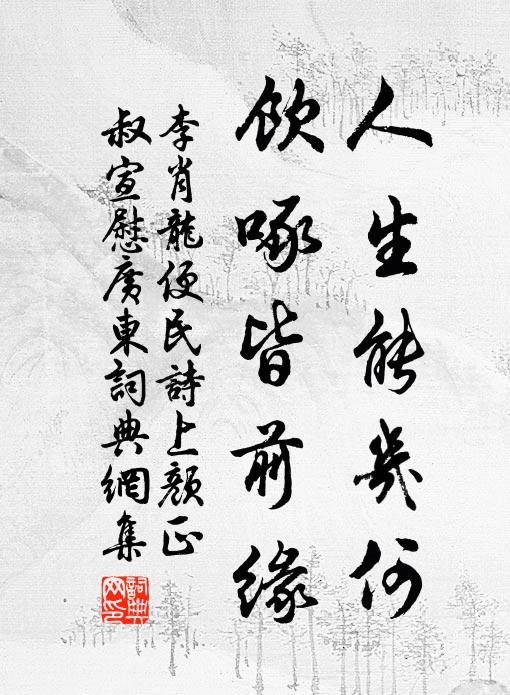 人生能幾何
飲啄皆前緣
李肖龍便民詩上顏正
叔宣慰廣東詞典網集
詞典網印